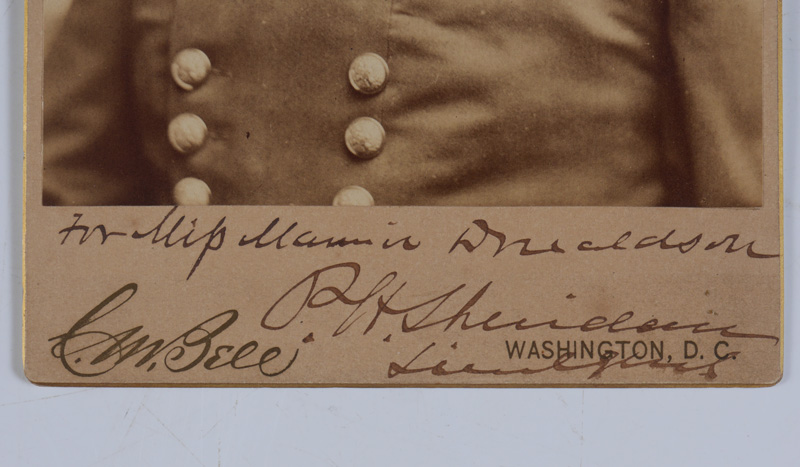 For Miss Mamie Donaldson
P. H. Sheridan
C. M. Bell
WASHINGTON, D. C.
Lieut Genl